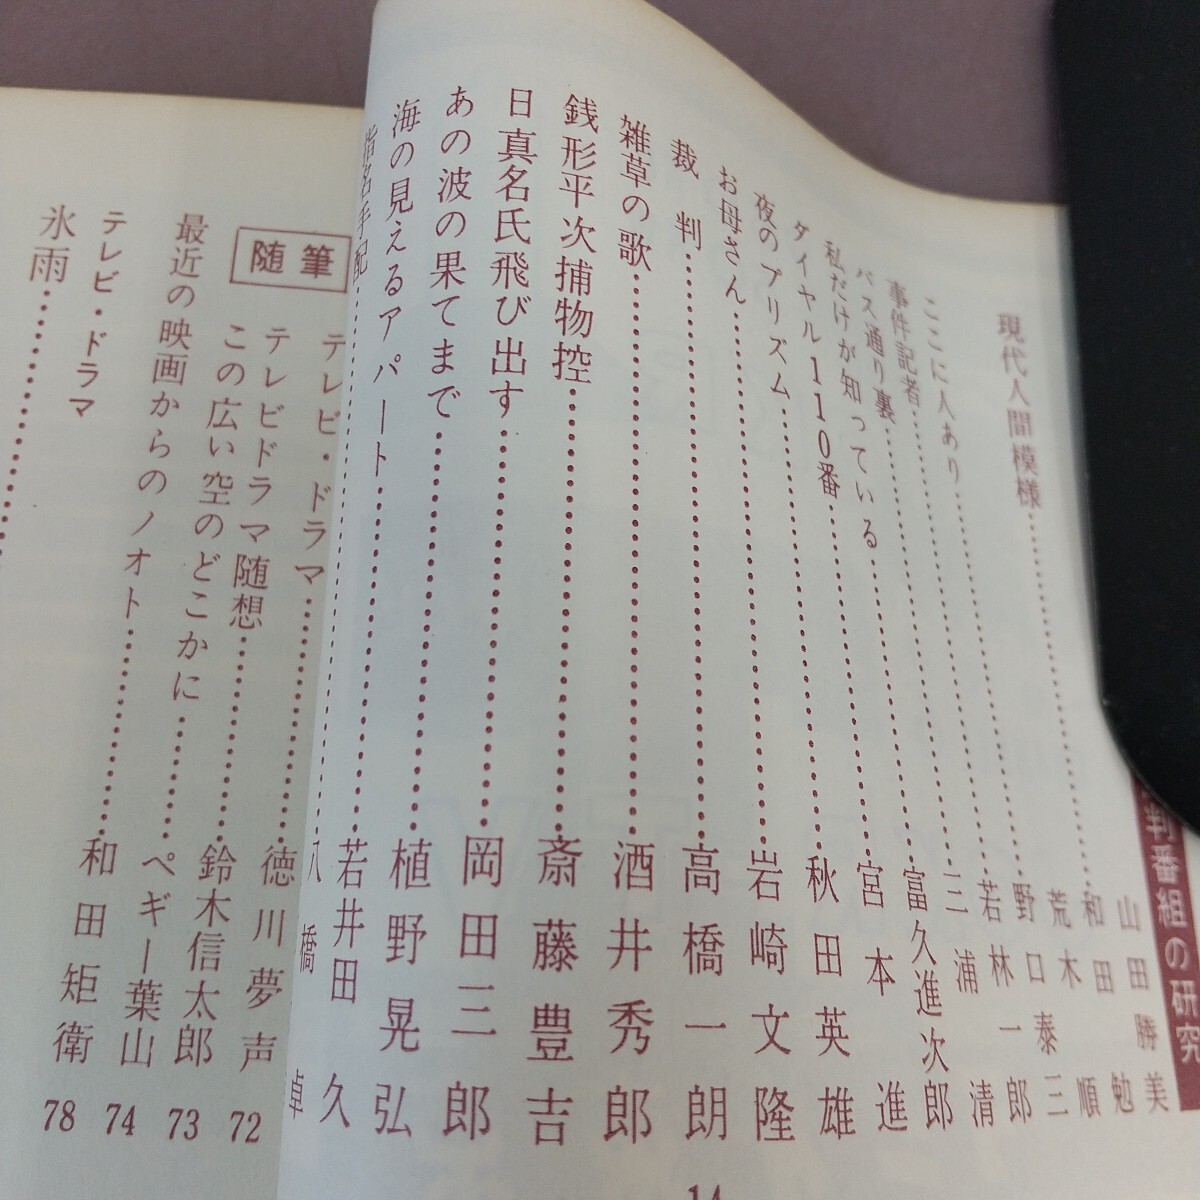 判番組の研究
山田勝美
現代人間模様……和田勉
荒木順
ここに人あり……野口泰三
事件記者……若林一郎
バス通り裏……三浦清
私だけが知っている……富久進次郎
ダイヤル110番……宮本進
夜のプリズム……秋田英雄
お母さん……岩崎文隆
裁判……高橋一朗
雑草の歌……酒井秀郎
銭形平次捕物控……斎藤豊吉
日真名氏飛び出す……岡田三郎
あの波の果てまで……植野晃弘
海の見えるアパート……若井田久
指名手配……八橋卓
14
随筆
テレビ・ドラマ……
テレビドラマ随想……徳川夢声 72
この広い空のどこかに……鈴木信太郎 73
最近の映画からのノオト……ペギー葉山 74
テレビ・ドラマ
氷雨……和田矩衛 78